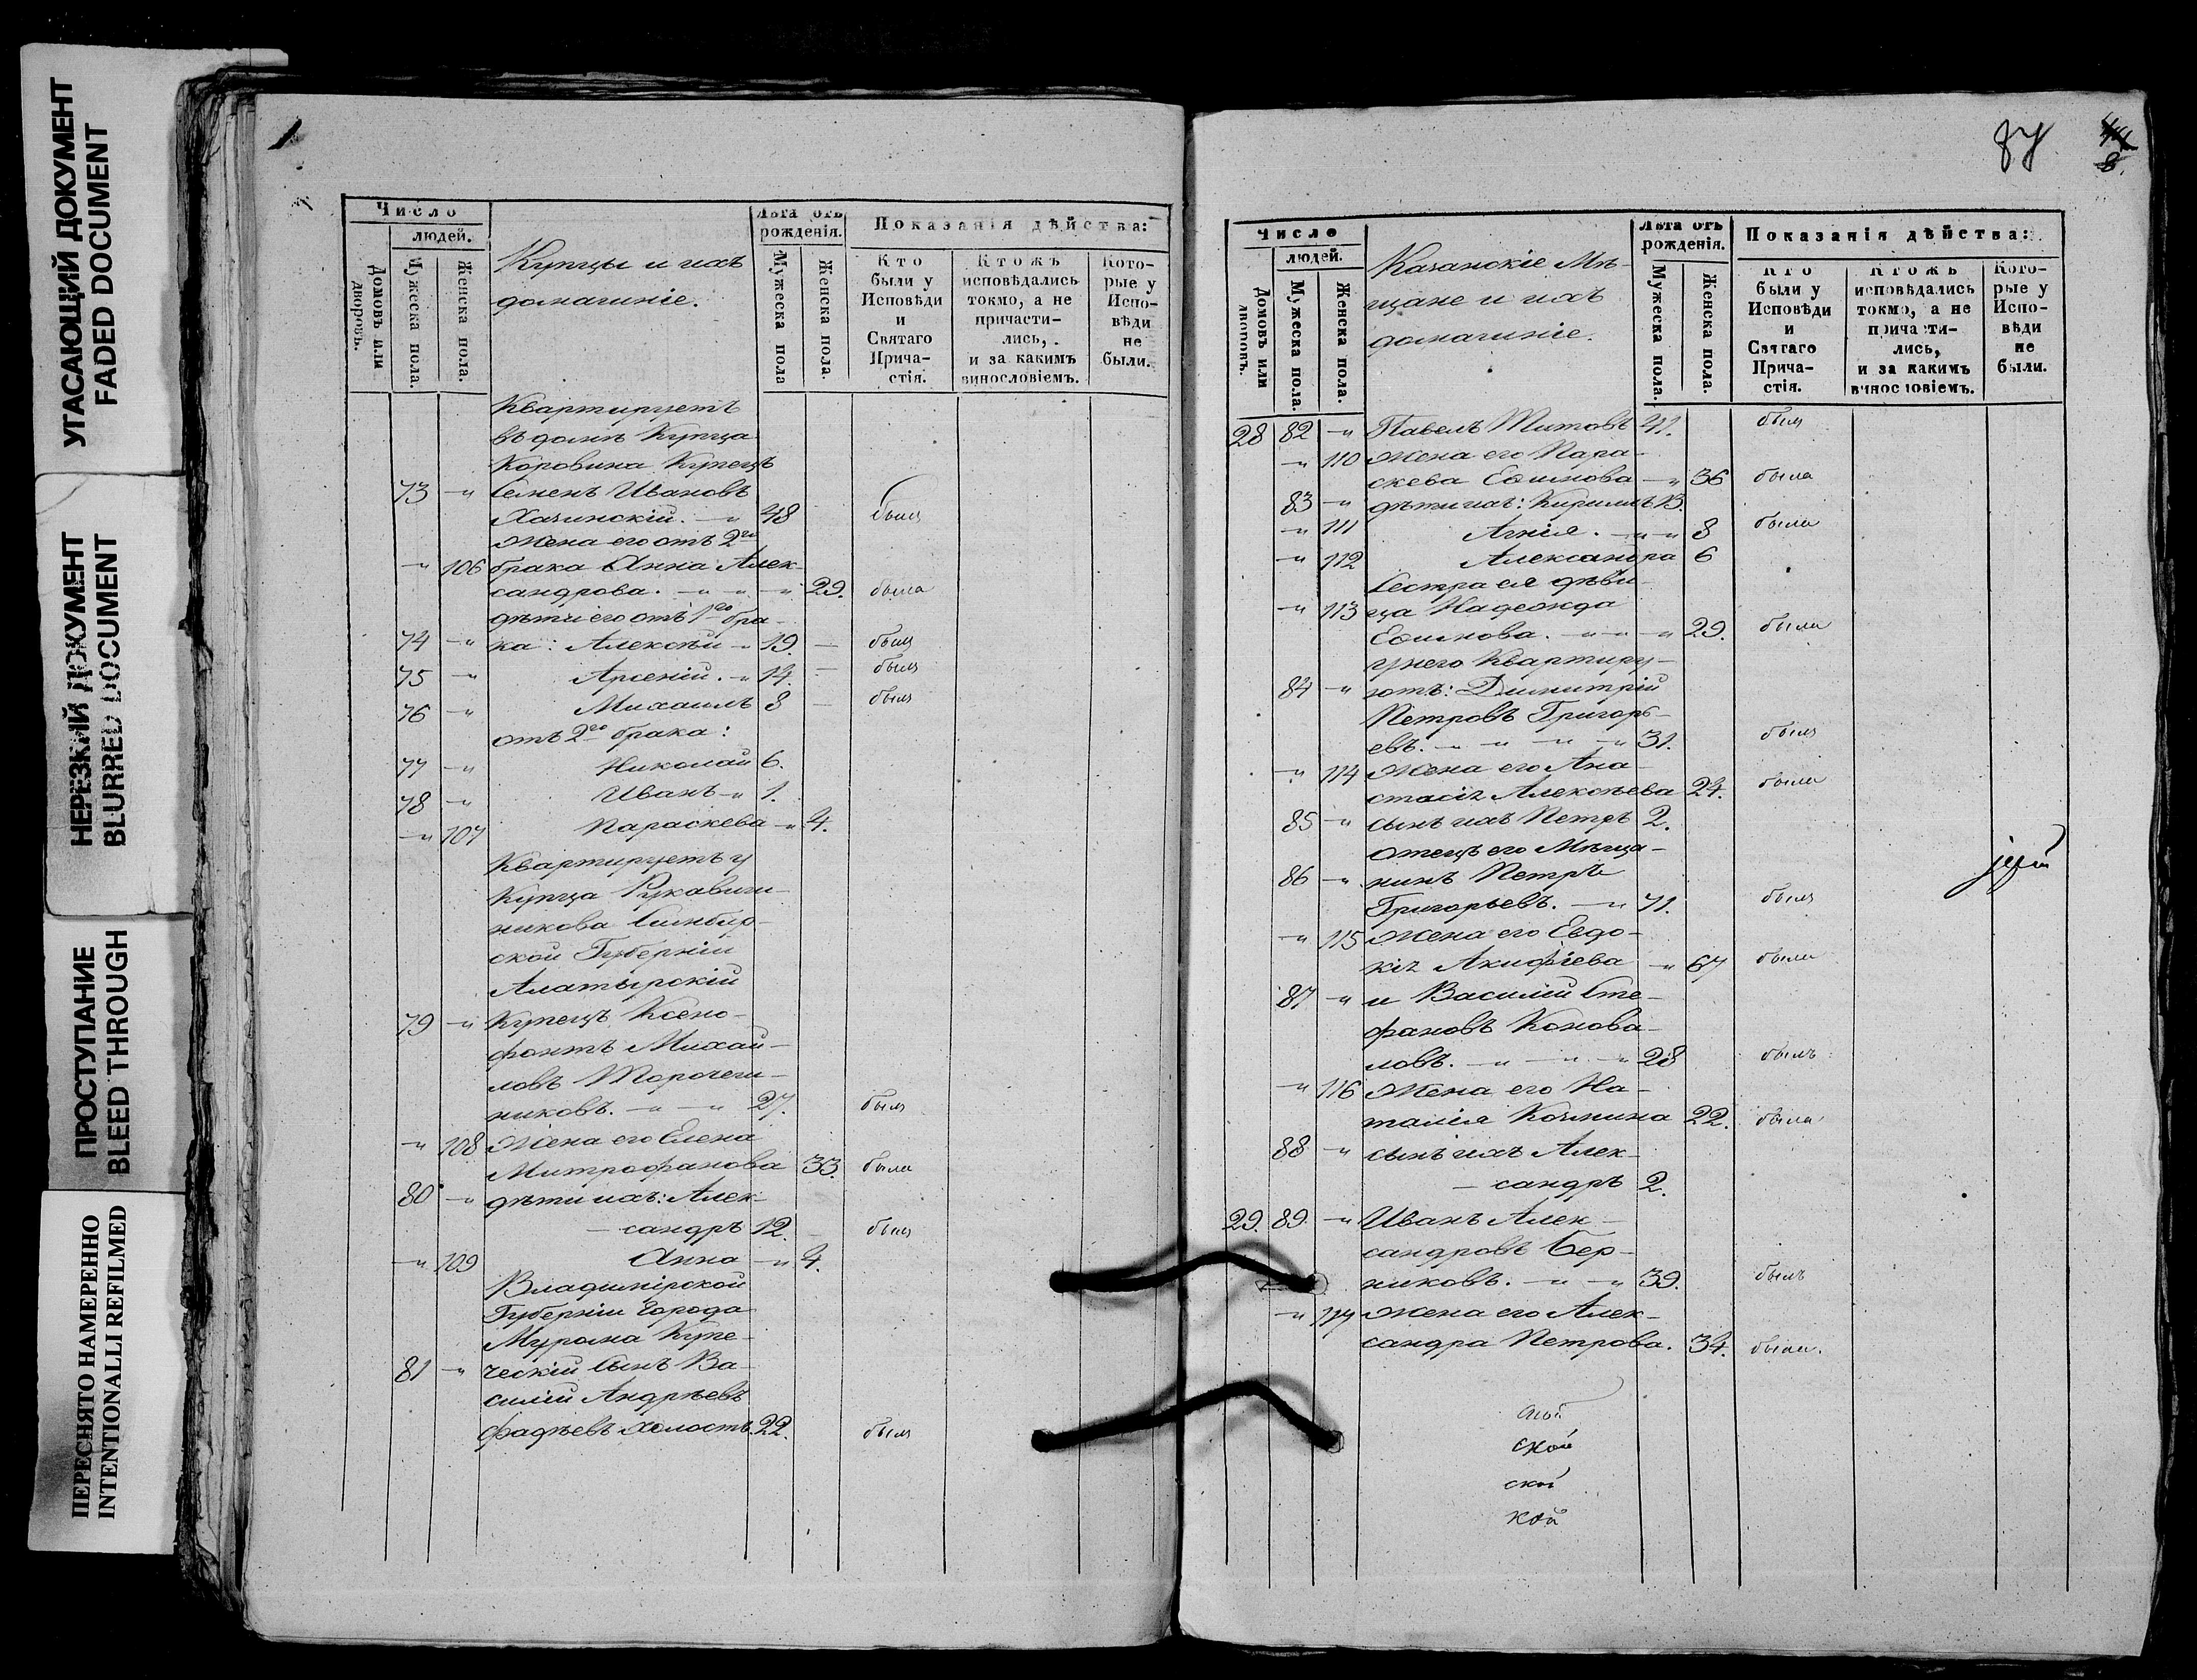 УГАСАЮЩИЙ ДОКУМЕНТ
FADED DOCUMENT
НЕРЕЗКИЙ ДОКУМЕНТ
BLURRED DOCUMENT
ПРОСТУПАНИЕ
BLEED THROUGH
ПЕРЕСНЯТО НАМЕРЕННО
INTENTIONALLI REFILMED
Число
людей.
Домовъ или дворовъ.
Мужеска пола.
Женска пола.
Купцы и ихъ
домашніе.
Лѣта отъ
рожденія.
Мужеска пола
Женска пола.
Показанія дѣйства:
Кто
были у
Исповѣди
и
Святаго
Прича-
стія.
Ктожъ
исповѣдались
токмо, а не
причасти-
лись,
и за какимъ
винословіемъ.
Кото-
рые у
Испо-
вѣди
не
были.
Квартируетъ
въ домѣ Купца
Коровина Купецъ
73 -„ Семенъ Ивановъ
Хачинскій. -„ 48 былъ
Жена его отъ 2го
-„ 106 брака Анна Алек-
сандрова. -„ -„ -„ 29. была
дѣти его отъ 1го бра-
74 -„ ка: Алексѣй -„ 19. - былъ
75 -„ Арсеній. -„ 14. - былъ
76 -„ Михаилъ 8 - былъ
отъ 2го брака:
77 -„ Николай 6.
78 -„ Иванъ -„ 1.
-„ 107 Параскева -„ 4.
Квартируетъ у
Купца Рукавиш-
никова Симбир-
ской Губерніи
Алатырскій
79 -„ Купецъ Ксено-
фонтъ Михай-
ловъ Торочеш-
никовъ. -„ -„ 27. былъ
-„ 108 Жена его Елена
Митрофанова 33. была
80 -„ дѣти ихъ: Алек-
- сандръ 12. былъ
-„ 109 Анна -„ 4.
Владимірской
Губерніи Города
Мурома Купе-
81 -„ ческій Сынъ Ва-
силій Андреевъ
Фадѣевъ холостъ. 22. былъ
87
Число
людей.
Домовъ или дворовъ.
Мужеска пола.
Женска пола.
Казанскіе Мѣ-
щане и ихъ
домашніе.
Лѣта отъ
рожденія.
Мужеска пола.
Женска пола.
Показанія дѣйства:
Кто
были у
Исповѣди
и
Святаго
Прича-
стія.
Ктожъ
исповѣдались
токмо, а не
причасти-
лись,
и за какимъ
винословіемъ.
Кото-
рые у
Испо-
вѣди
не
были.
28 82 -„ Павелъ Титовъ 41. былъ
-„ 110 Жена его Пара-
скева Еѳимова -„ 36 была
83 -„ дѣти ихъ: Кириллъ 13.
-„ 111 Агнія. -„ -„ 8 была
-„ 112 Александра 6
Сестра ея дѣви-
-„ 113 ца Надежда
Еѳимова. -„ -„ -„ 29. была
у него Квартиру-
84 -„ ютъ: Димитрій
Петровъ Григорь-
евъ. -„ -„ -„ -„ 31. былъ
-„ 114 Жена его Ана-
стасія Алексѣева 24. была
85 -„ сынъ ихъ Петръ 2.
отецъ его Мѣща-
86 -„ нинъ Петръ
Григорьевъ. -„ 71. былъ
-„ 115 Жена его Евдо-
кія Акифіева -„ 67 была
87 -„ и Василій Сте-
фановъ Конова-
ловъ. -„ -„ -„ 28 былъ
-„ 116 Жена его На-
талія Козмина 22. была
88 -„ сынъ ихъ Алек-
- сандръ 2.
29. 89. -„ Иванъ Алек-
сандровъ Бер-
никовъ. -„ -„ 39. былъ
-„ 117 Жена его Алек-
сандра Петрова. 34. была.
ской
ской
кой